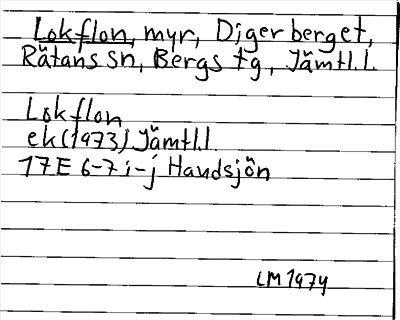 Lokflon, myr, Digerberget,
Rätans sn, Bergs tg, Jämtl.l.
Lokflon
ek (1973) Jämtl.l.
17E 6-7 i-j Handsjön
LM 1974